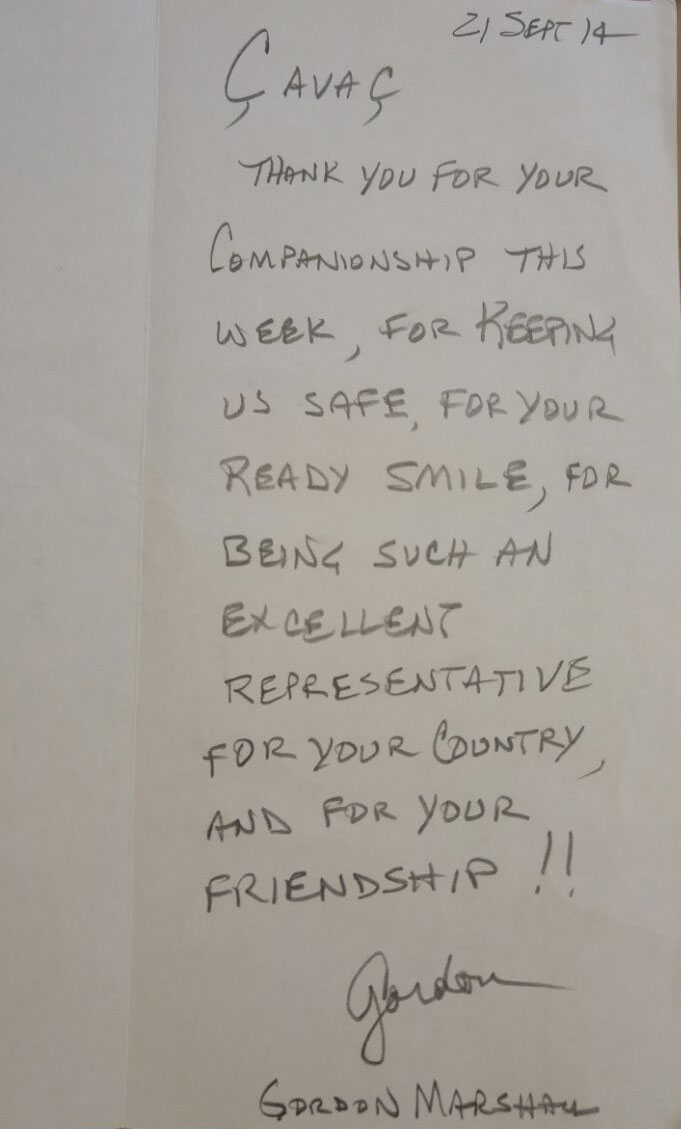 21 SEPT 14
ÇAVAÇ
THANK YOU FOR YOUR
COMPANIONSHIP THIS
WEEK, FOR KEEPING
US SAFE, FOR YOUR
READY SMILE, FOR
BEING SUCH AN
EXCELLENT
REPRESENTATIVE
FOR YOUR COUNTRY,
AND FOR YOUR
FRIENDSHIP !!
Gordon
GORDON MARSHALL